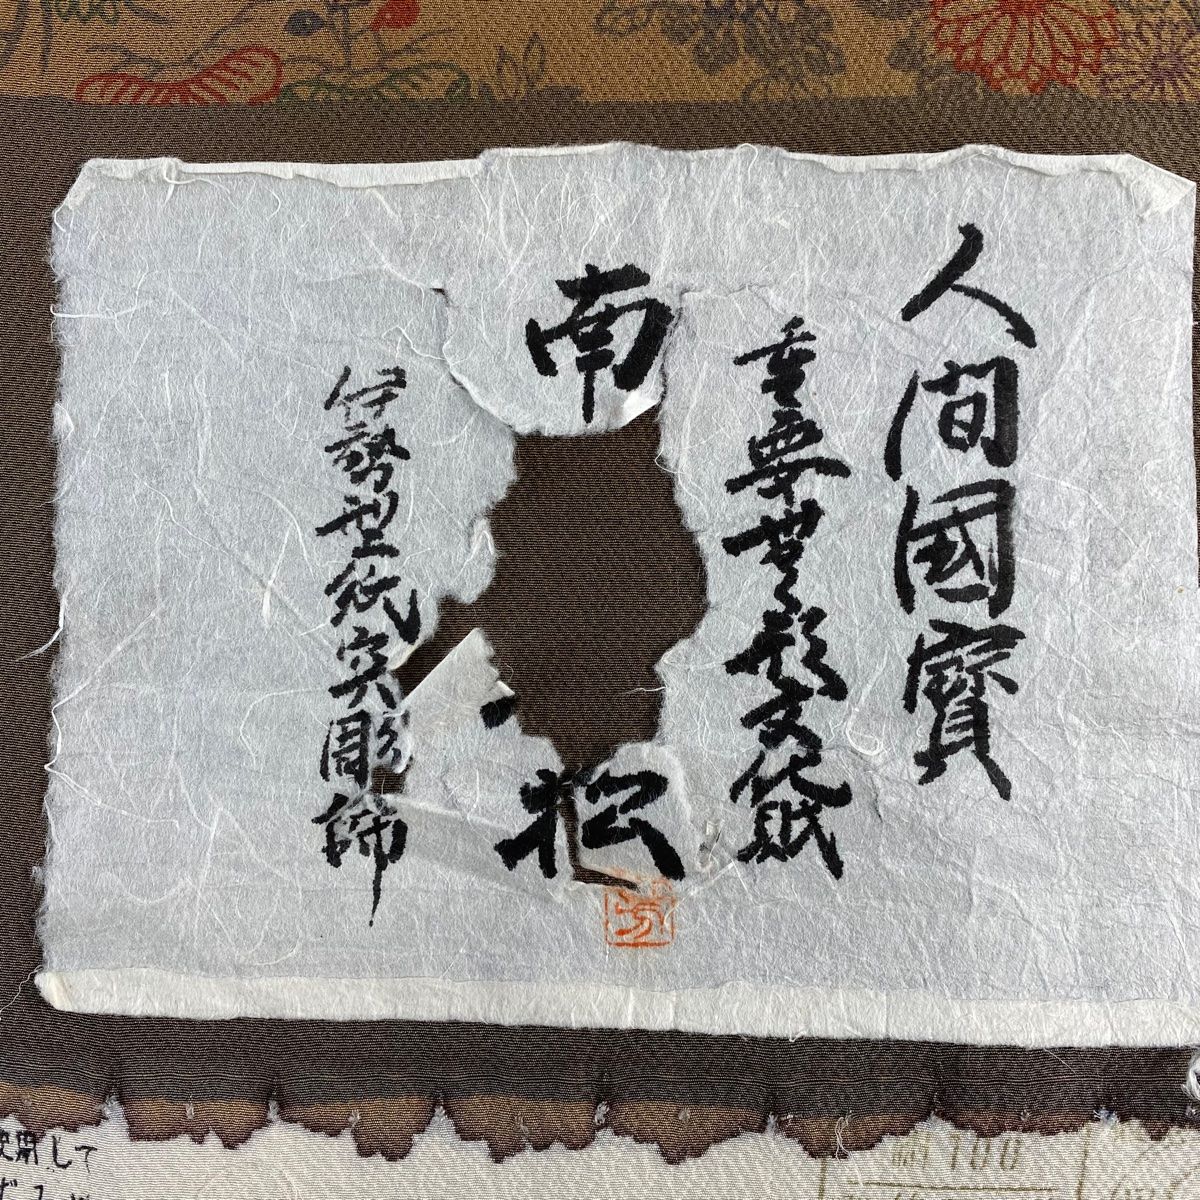 人間國寶
重要無形文化財
南
松
伊勢型紙突彫師
使用して
絹100